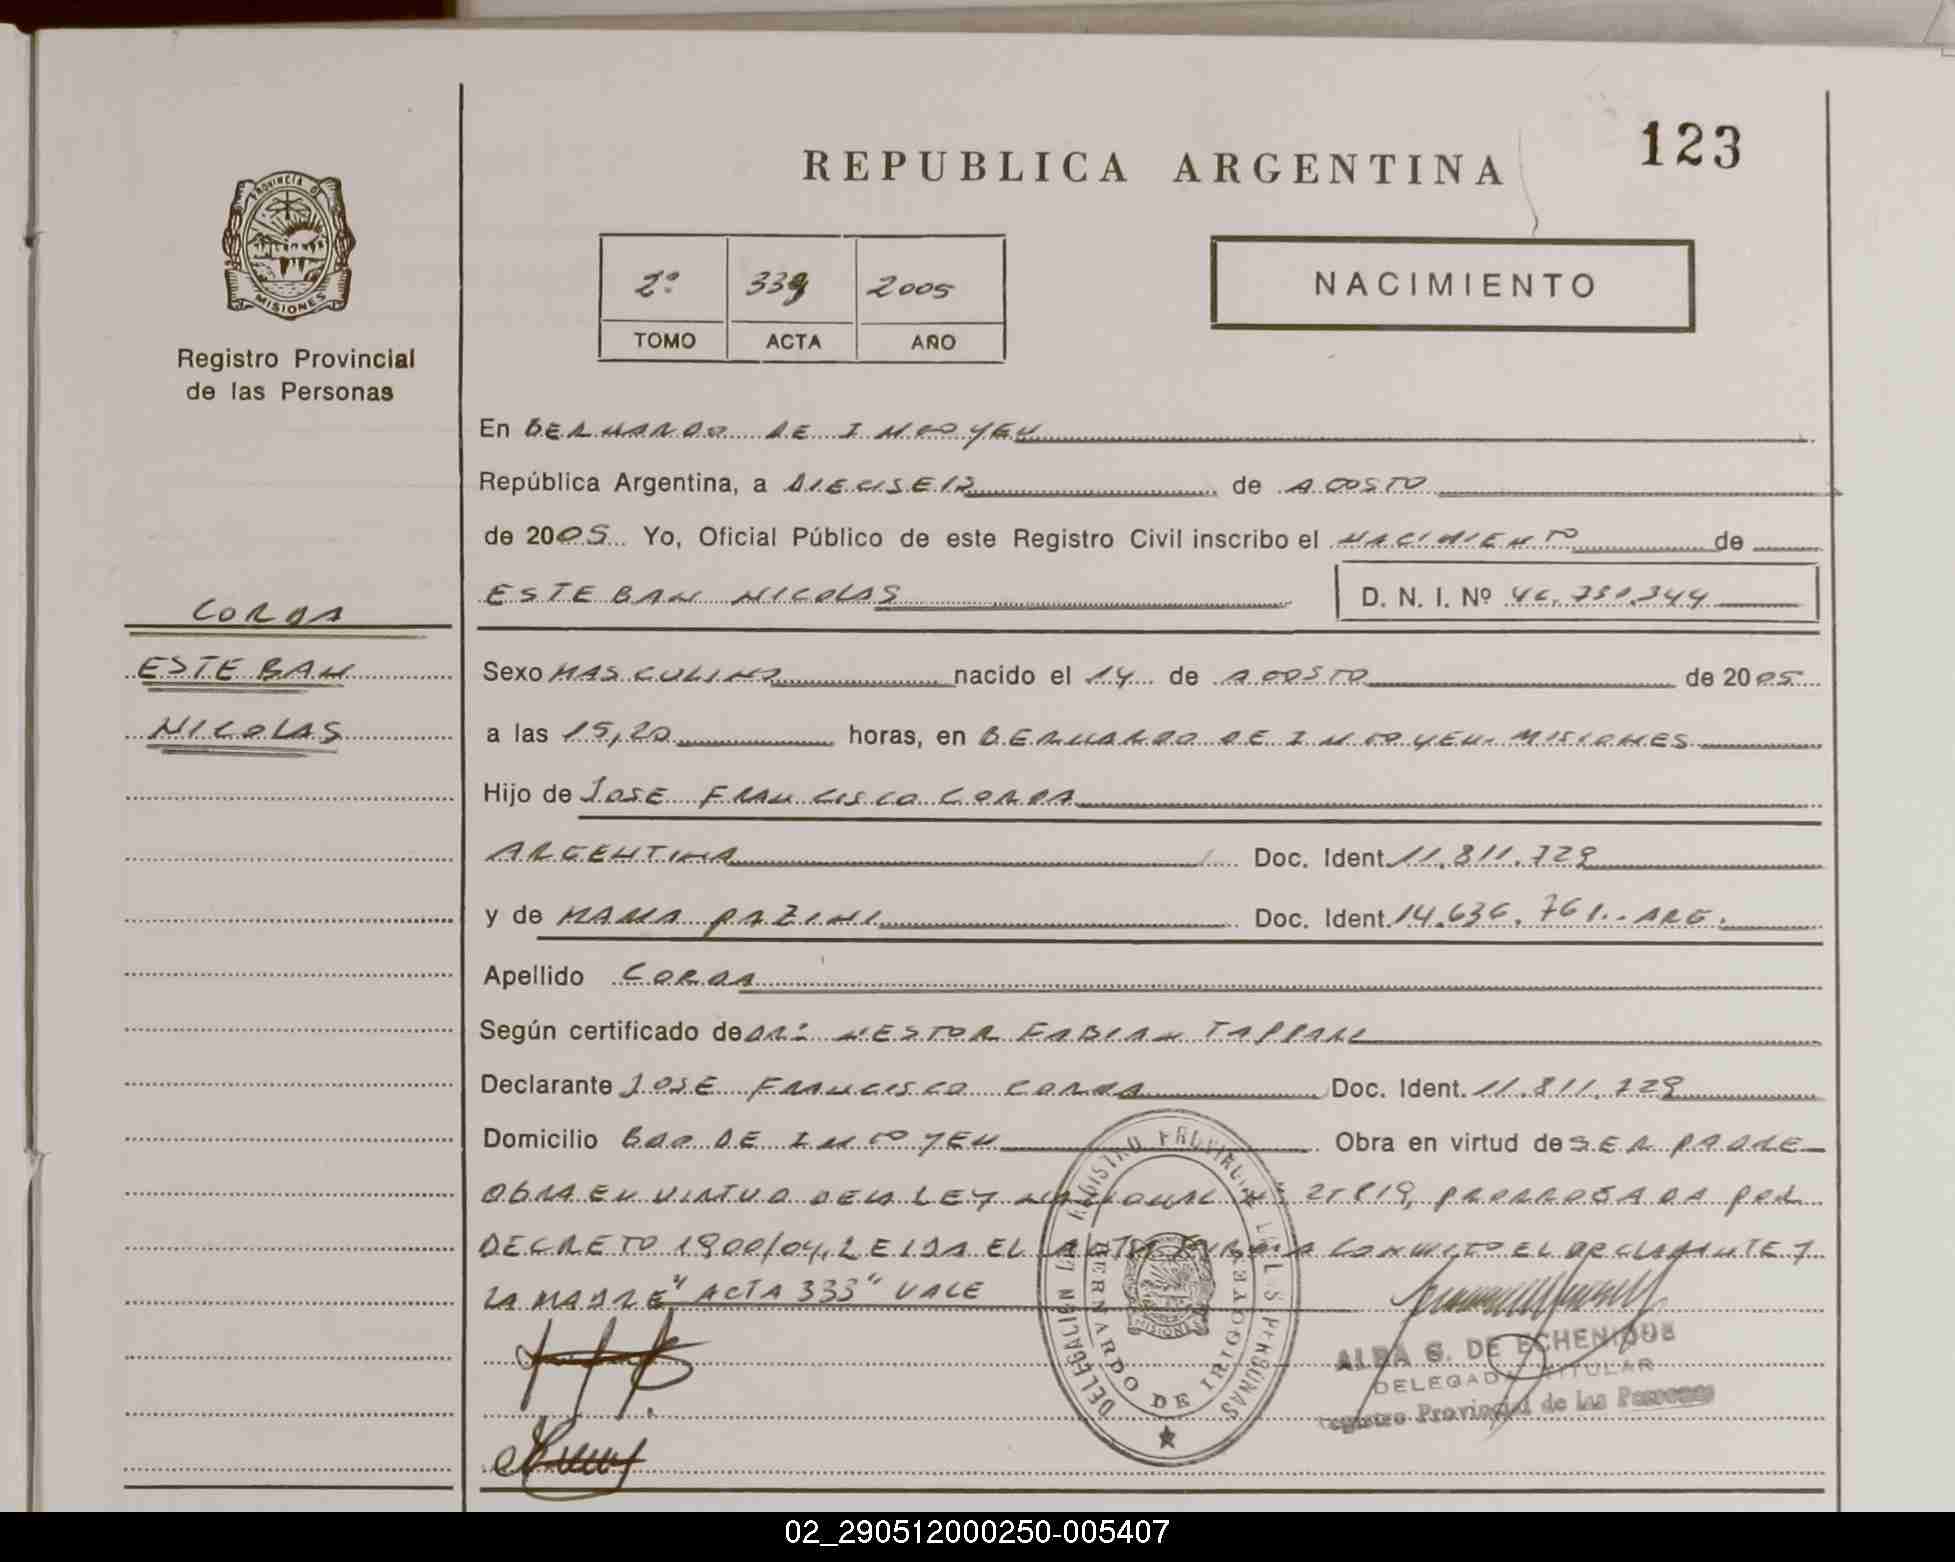 REPUBLICA ARGENTINA
123
PROVINCIA D MISIONES
Registro Provincial
de las Personas
2º 2005
TOMO ACTA AÑO
NACIMIENTO
En BERNARDO DE IRIGOYEN
República Argentina, a DIECISEIS de AGOSTO
de 2005 Yo, Oficial Público de este Registro Civil inscribo el NACIMIENTO de
ESTEBAN NICOLAS D. N. I. Nº
CORDA
ESTEBAN
NICOLAS
Sexo MASCULINO nacido el 14 de AGOSTO de 2005
a las 15,20 horas, en BERNARDO DE IRIGOYEN. MISIONES
Hijo de JOSE FRANCISCO CORDA
ARGENTINA Doc. Ident. 11.811.729
y de Doc. Ident. 14.636.761.. ARG.
Apellido CORDA
Según certificado de DR: NESTOR FABIAN
Declarante JOSE FRANCISCO CORDA Doc. Ident. 11.811.729
Domicilio BDO DE IRIGOYEN Obra en virtud de SER PADRE
OBRA EN VIRTUD DE LA LEY NACIONAL Nº PRORROGADA POR
DECRETO 1900/04. LEIDA EL ACTA FIRMA CONMIGO EL DECLARANTE Y
LA MADRE "ACTA 333" VALE
DELEGACION REGISTRO PROVINCIAL DE LAS PERSONAS
BERNARDO DE IRIGOYEN
MISIONES
ALBA G. DE ECHENIQUE
DELEGADA TITULAR
Registro Provincial de las Personas
02_290512000250-005407